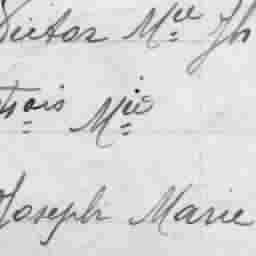 Victor Mie Jh
frois Mie
Joseph Marie